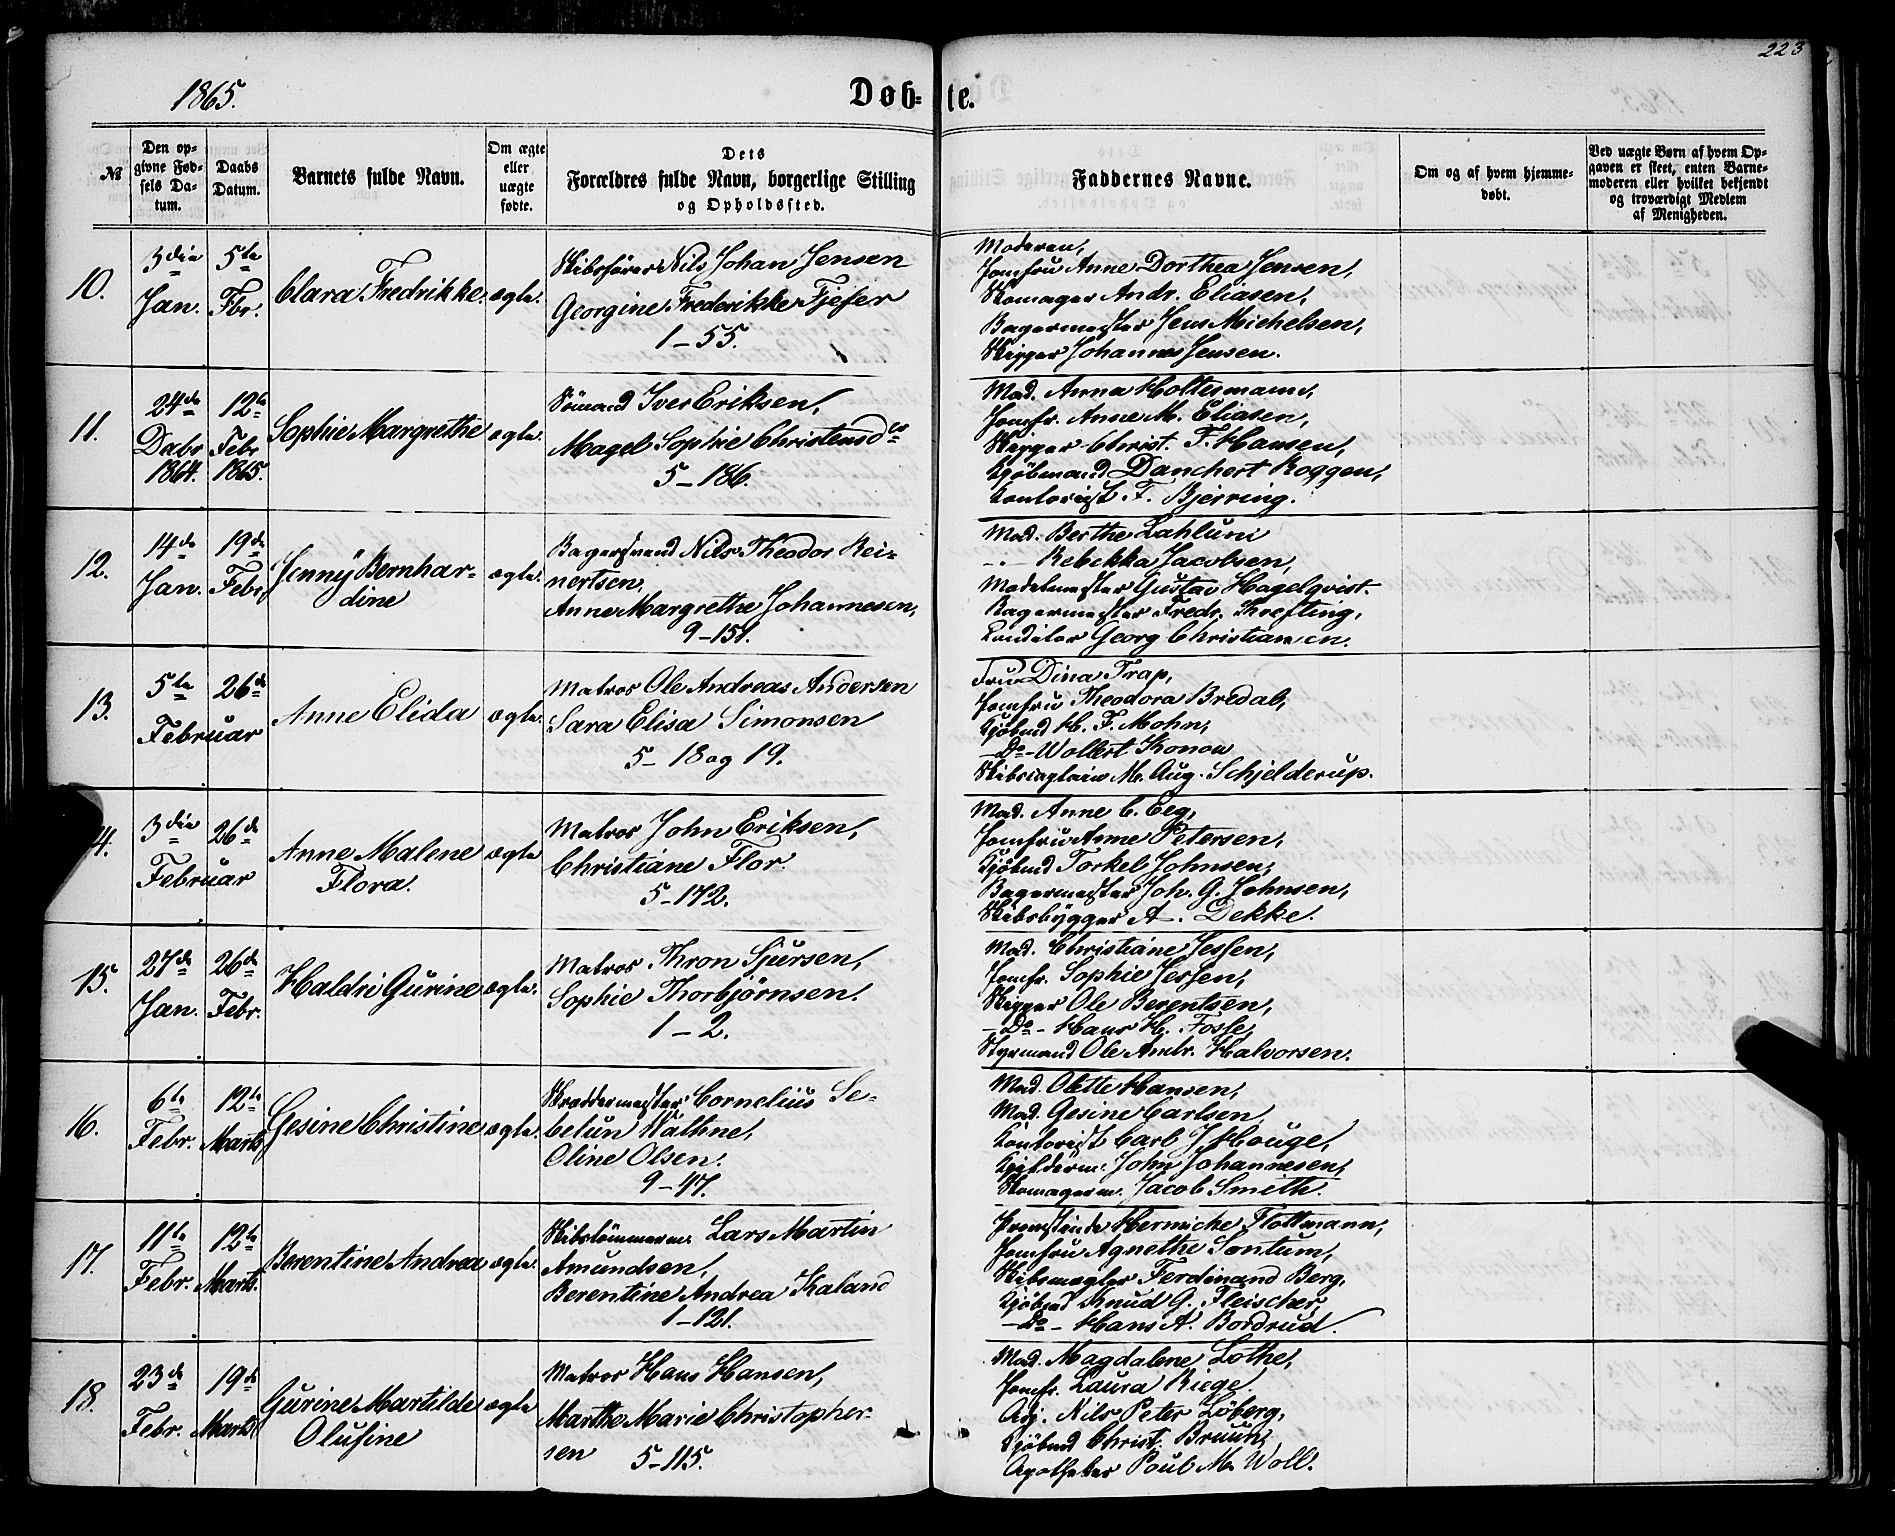 223
1865.
Døb-te.
№
Den op-
givne Fød-
sels Da-
tum.
Daabs
Datum.
Barnets fulde Navn.
Om ægte
eller
uægte
fødte.
Dets
Forældres fulde Navn, borgerlige Stilling
og Opholdssted.
Faddernes Navne.
Om og af hvem hjemme-
døbt.
Ved uægte Børn af hvem Op-
gaven er skeet, enten Barne-
moderen eller hvilket bekjendt
og troværdigt Medlem
af Menigheden.
10.
3die
Jan.
5te
Fbr.
Clara Fredrikke
ægte.
Skibsfører Nils Johan Jensen
Georgine Frederikke Fjeser
1-55.
Moderen,
Jomfru Anne Dorthea Jensen,
Skomager Andr. Eliasen,
Bagermester Jens Michelsen,
Skipper Johannes Jensen.
11.
24de
Decbr
1864.
12te
Febr
1865.
Sophie Margrethe
ægte.
Sømand Iver Eriksen,
Magel. Sophie Christensdr
5-186.
Mad. Anna Holtermann,
Jomfr. Anne M. Eliasen,
Skipper Christ. F. Hansen,
Kjøbmand Danchert Roggen,
Kontorist F. Bjerring.
12.
14de
Jan.
19de
Febr
Jenny Bernhar-
dine
ægte.
Bagersvend Nils Theodor Rei-
nertsen,
Anne Margrethe Johannesen,
9-151.
Mad. Berthe Lahluni
-"- Rebekka Jacobsen,
Gustav Hagelqvist.
Bagermester Fredr. Krefting,
Conditor Georg Christiansen.
13.
5te
26de
Februar
Anne Elida
ægte.
Matros Ole Andreas Andersen
Sara Elisa Simonsen
5-18 og 19.
Frue Dina Trap,
Jomfru Theodora Bredal,
Kjøbmd H. F. Mohn,
-Do- Wollert Konow
Skibscaptain M. Aug. Schjelderup.
4.
3die
26de
Februar
Anne Malene
Flora.
ægte
Matros John Eriksen,
Christiane Flor.
5-172.
Mad. Anne C. Eeg,
Jomfru Anne Petersen,
Kjøbmd Torkel Johnsen,
Bagermester Joh. G. Johnsen,
Skibsbygger A. Dekke.
15.
27de
Jan.
26de
Febr.
Haldri Gurine
ægte.
Matros Thron Sjursen,
Sophie Thorbjørnsen.
1-2.
Mad. Christiane Jessen,
Jomfr. Sophie Jessen,
Skipper Ole Berentsen,
-Do- Hans H. Fosse,
Styrmand Ole Ambr. Halvorsen.
16.
6te
Febr.
12te
Marts
Gesine Christine
ægte.
Skræddermester Cornelius Se-
belun Wathne,
Oline Olsen.
9-47.
Mad. Olette Hansen,
Mad. Gesine Carlsen
Kontorist Carl J. Houge,
John Johannesen,
Skomagerm. Jacob Smith.
17.
11te
Febr.
12te
Marts.
Berentine Andrea
ægte.
Skibstømmerm. Lars Martin
Amundsen,
Berentine Andrea Kaland
1-121.
Hermiche Flottmann,
Jomfru Agnethe Sontum,
Skibsmægler Ferdinand Berg,
Kjøbmd Knud G. Fleischer,
-Do- Hans A. Bordrud.
18.
23de
Febr.
19de
Marts
Gurine Martilde
Olusine
ægte
Matros Hans Hansen,
Marthe Marie Christopher-
sen 5-115.
Mad. Magdalene Lothe,
Jomfr. Laura Riege
Nils Peter Løberg,
Kjøbmd Christ. Bruun,
Apotheker Poul M. Woll.